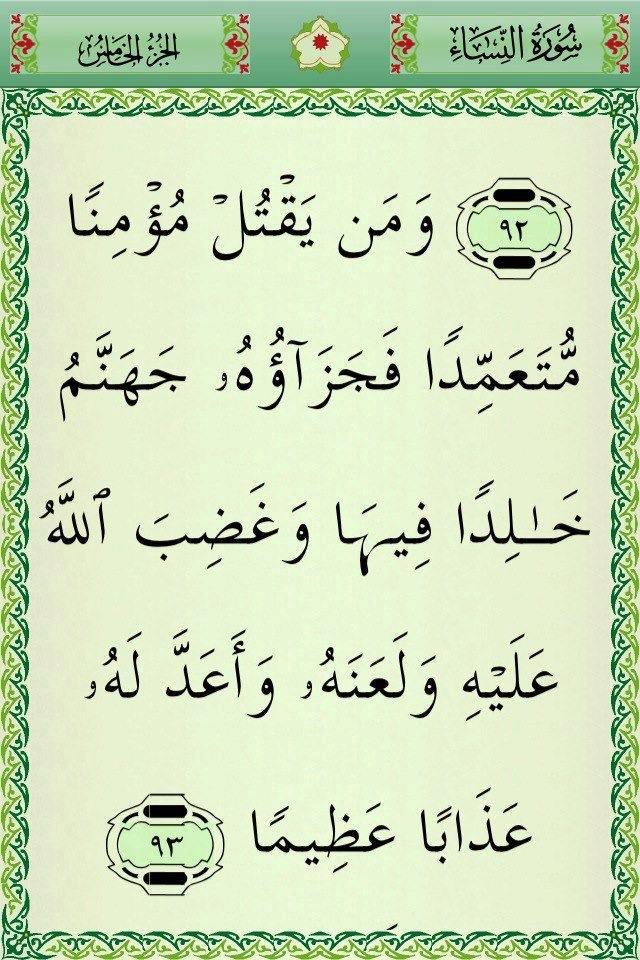 سُورَةُ النِّسَاءِ
الجُزْءُ الخَامِسُ
٩٢ وَمَن يَقْتُلْ مُؤْمِنًا
مُّتَعَمِّدًا فَجَزَآؤُهُۥ جَهَنَّمُ
خَـٰلِدًا فِيهَا وَغَضِبَ ٱللَّهُ
عَلَيْهِ وَلَعَنَهُۥ وَأَعَدَّ لَهُۥ
عَذَابًا عَظِيمًا ٩٣